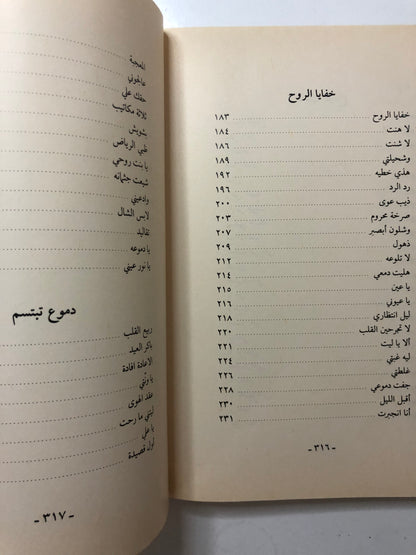 خفايا الروح
خفايا الروح ١٨٣
لا هنت ١٨٤
لا شنت ١٨٦
وشحيلتي ١٨٩
هذي خطيه ١٩٢
رد الرد ١٩٦
ذيب عوى ٢٠٠
صرخة محروم ٢٠٣
وشلون أبصبر ٢٠٧
ذهول ٢٠٩
لا تلوعه ٢١٢
هليت دمعي ٢١٤
يا عين ٢١٥
يا عيوني ٢١٦
ليل انتظاري ٢١٨
لا تجرحين القلب ٢٢٠
ألا يا ليت ٢٢١
ليه غبتي ٢٢٤
غلطتي ٢٢٦
جفت دموعي ٢٢٨
أقبل الليل ٢٣٠
أنا انجبرت ٢٣١
- ٣١٦ -
المعجبة
عالجوني
حقك علي
ثلاثة مكاتيب
بشويش
ظبي الرياض
يا بنت روحي
شيعت جثمانه
وادعيني
لابس الشال
تقاليد
يا دموعه
يا نور عيني
دموع تبتسم
ربيع القلب
باكر العيد
الاعادة افادة
يا ونّي
عقد الهوى
ليتني ما رحت
يا علي
أول قصيدة
- ٣١٧ -